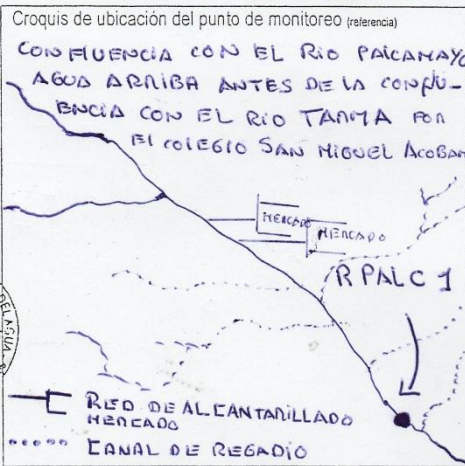 Croquis de ubicación del punto de monitoreo (referencia)
CONFLUENCIA CON EL RIO PALCAMAYO
AGUA ARRIBA ANTES DE LA CONFLU-
ENCIA CON EL RIO TARMA POR
EL COLEGIO SAN MIGUEL ACOBAM
MERCADO
MERCADO
R PALC 1
DEL AGUA
RED DE ALCANTARILLADO
MERCADO
CANAL DE REGADIO